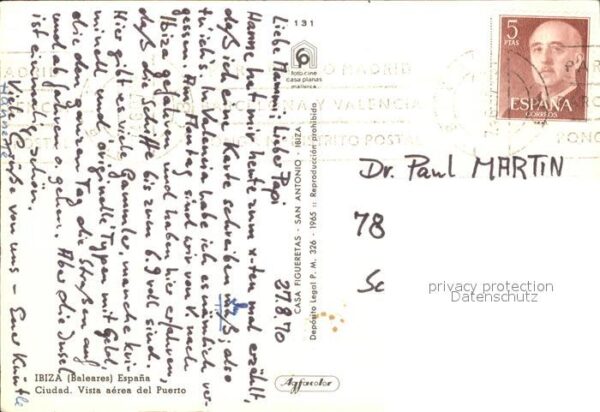 131
27.8.70
Liebe Mammi, lieber Papi
Hanne hat mir heute zum x-ten mal erzählt,
daß ich eine Karte schreiben muß; also
tu ich's. in Valencia habe ich es nämlich ver-
gessen. Am Montag sind wir von V. nach
Ibiza gefahren und haben hier erfahren,
daß die Schiffe bis zum 6.9 voll sind.
Hier gibt es viele Gammler, manche kri-
minell und originelle Typen mit Geld,
die den ganzen Tag die Straßen auf
und ab fahren o. gehen. Aber die Insel
ist einmalig schön.
Viele Grüße von uns - Eure
Hanne
foto-cine
casa planas
mallorca
CASA FIGUERETAS - SAN ANTONIO - IBIZA
Depósito Legal P. M. 326 - 1965 :: Reproducción prohibida
5
PTAS
ESPAÑA
CORREOS
MADRID
BARCELONA Y VALENCIA
DISTRITO POSTAL
Dr. Paul MARTIN
78
Sc
privacy protection
Datenschutz
IBIZA (Baleares) España
Ciudad. Vista aérea del Puerto
Agfacolor